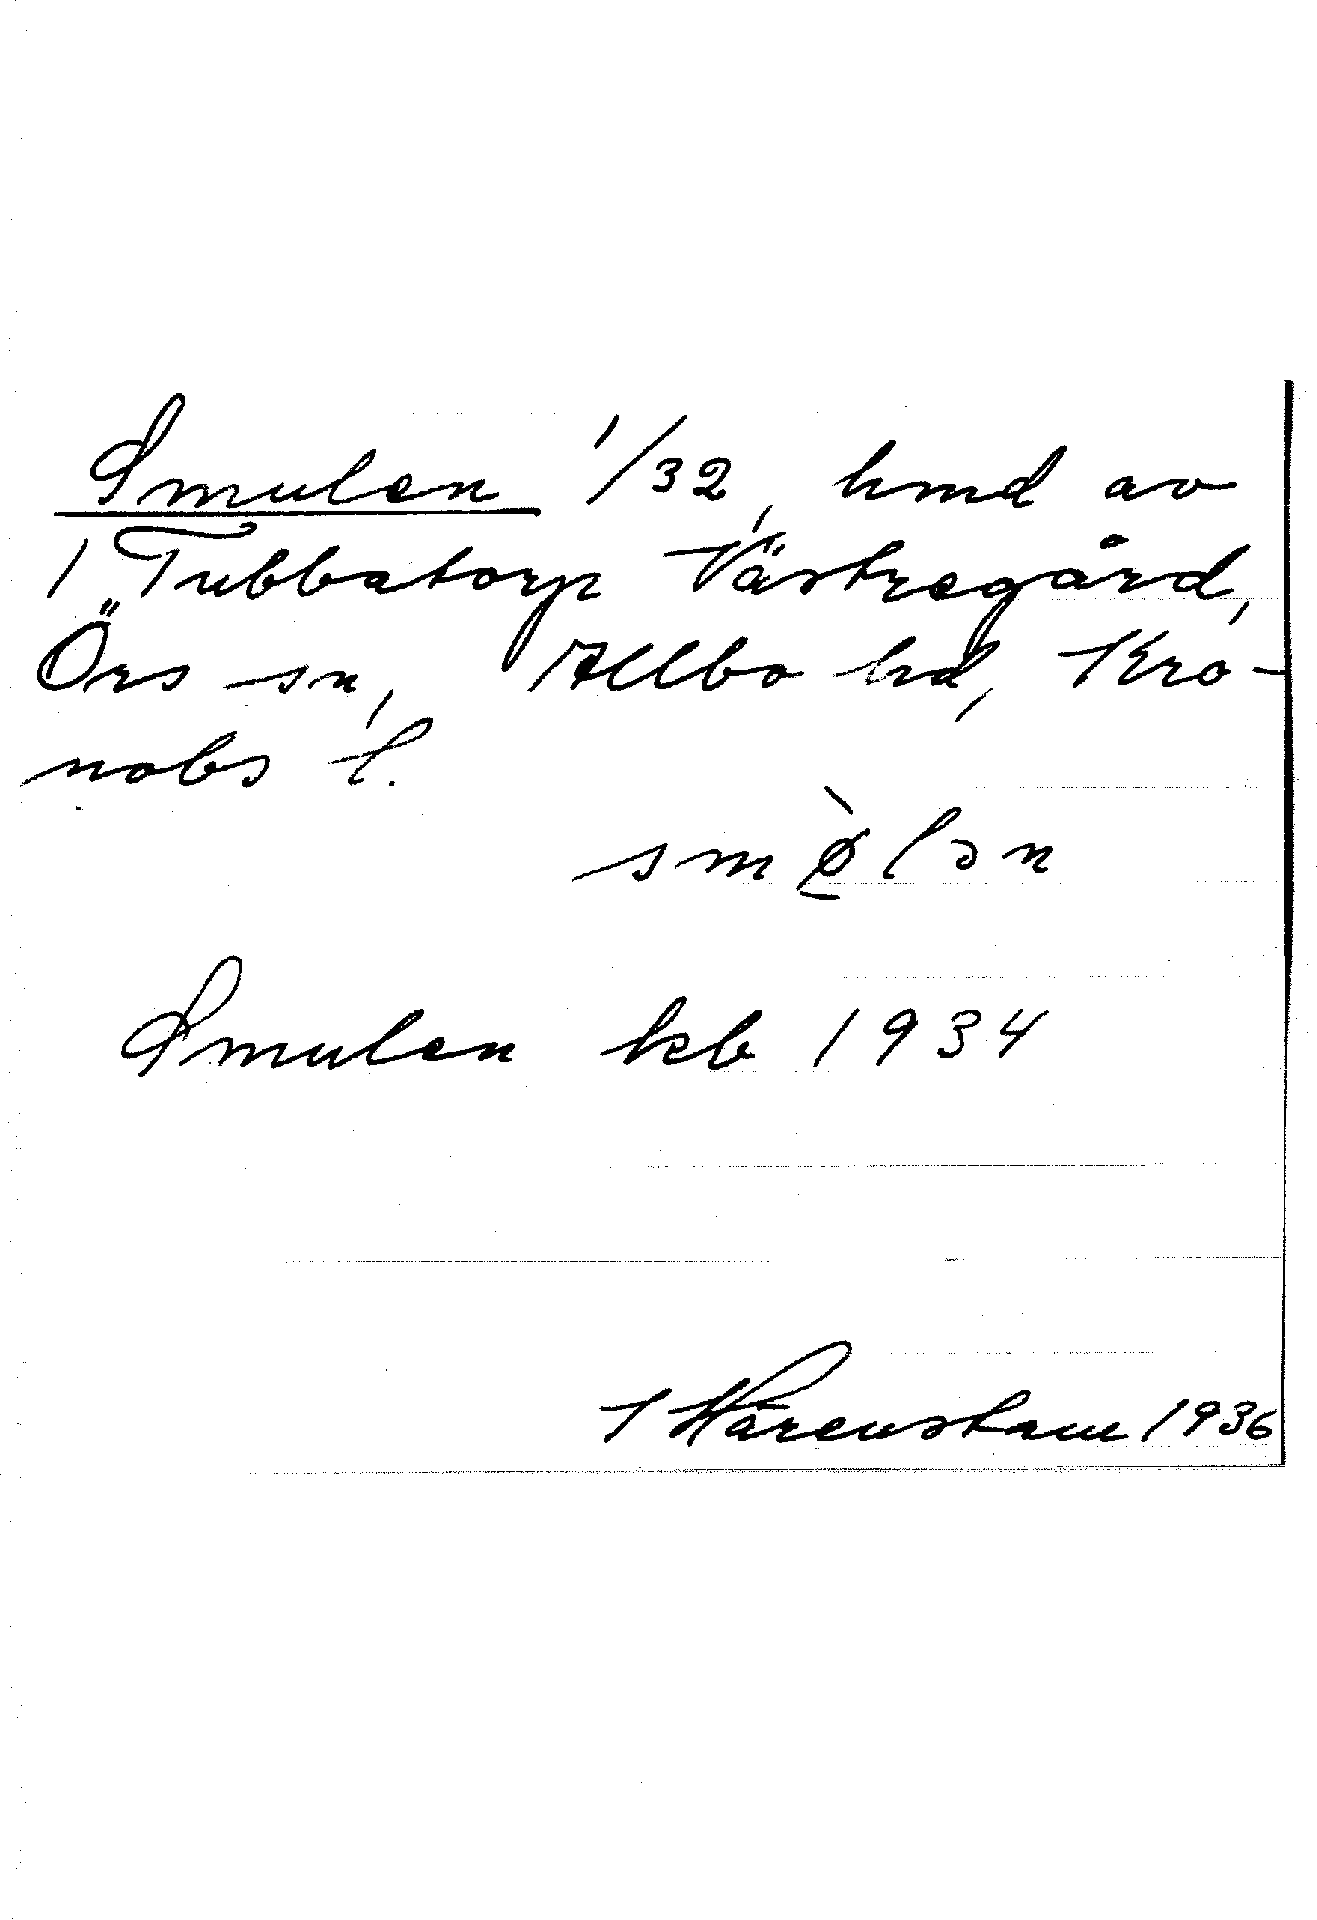 Smulen 1/32, hmd av
1 Tubbatorp Västregård,
Örs sn, Allbo hd, Kro-
nobs l.
Smulen kb 1934
1936